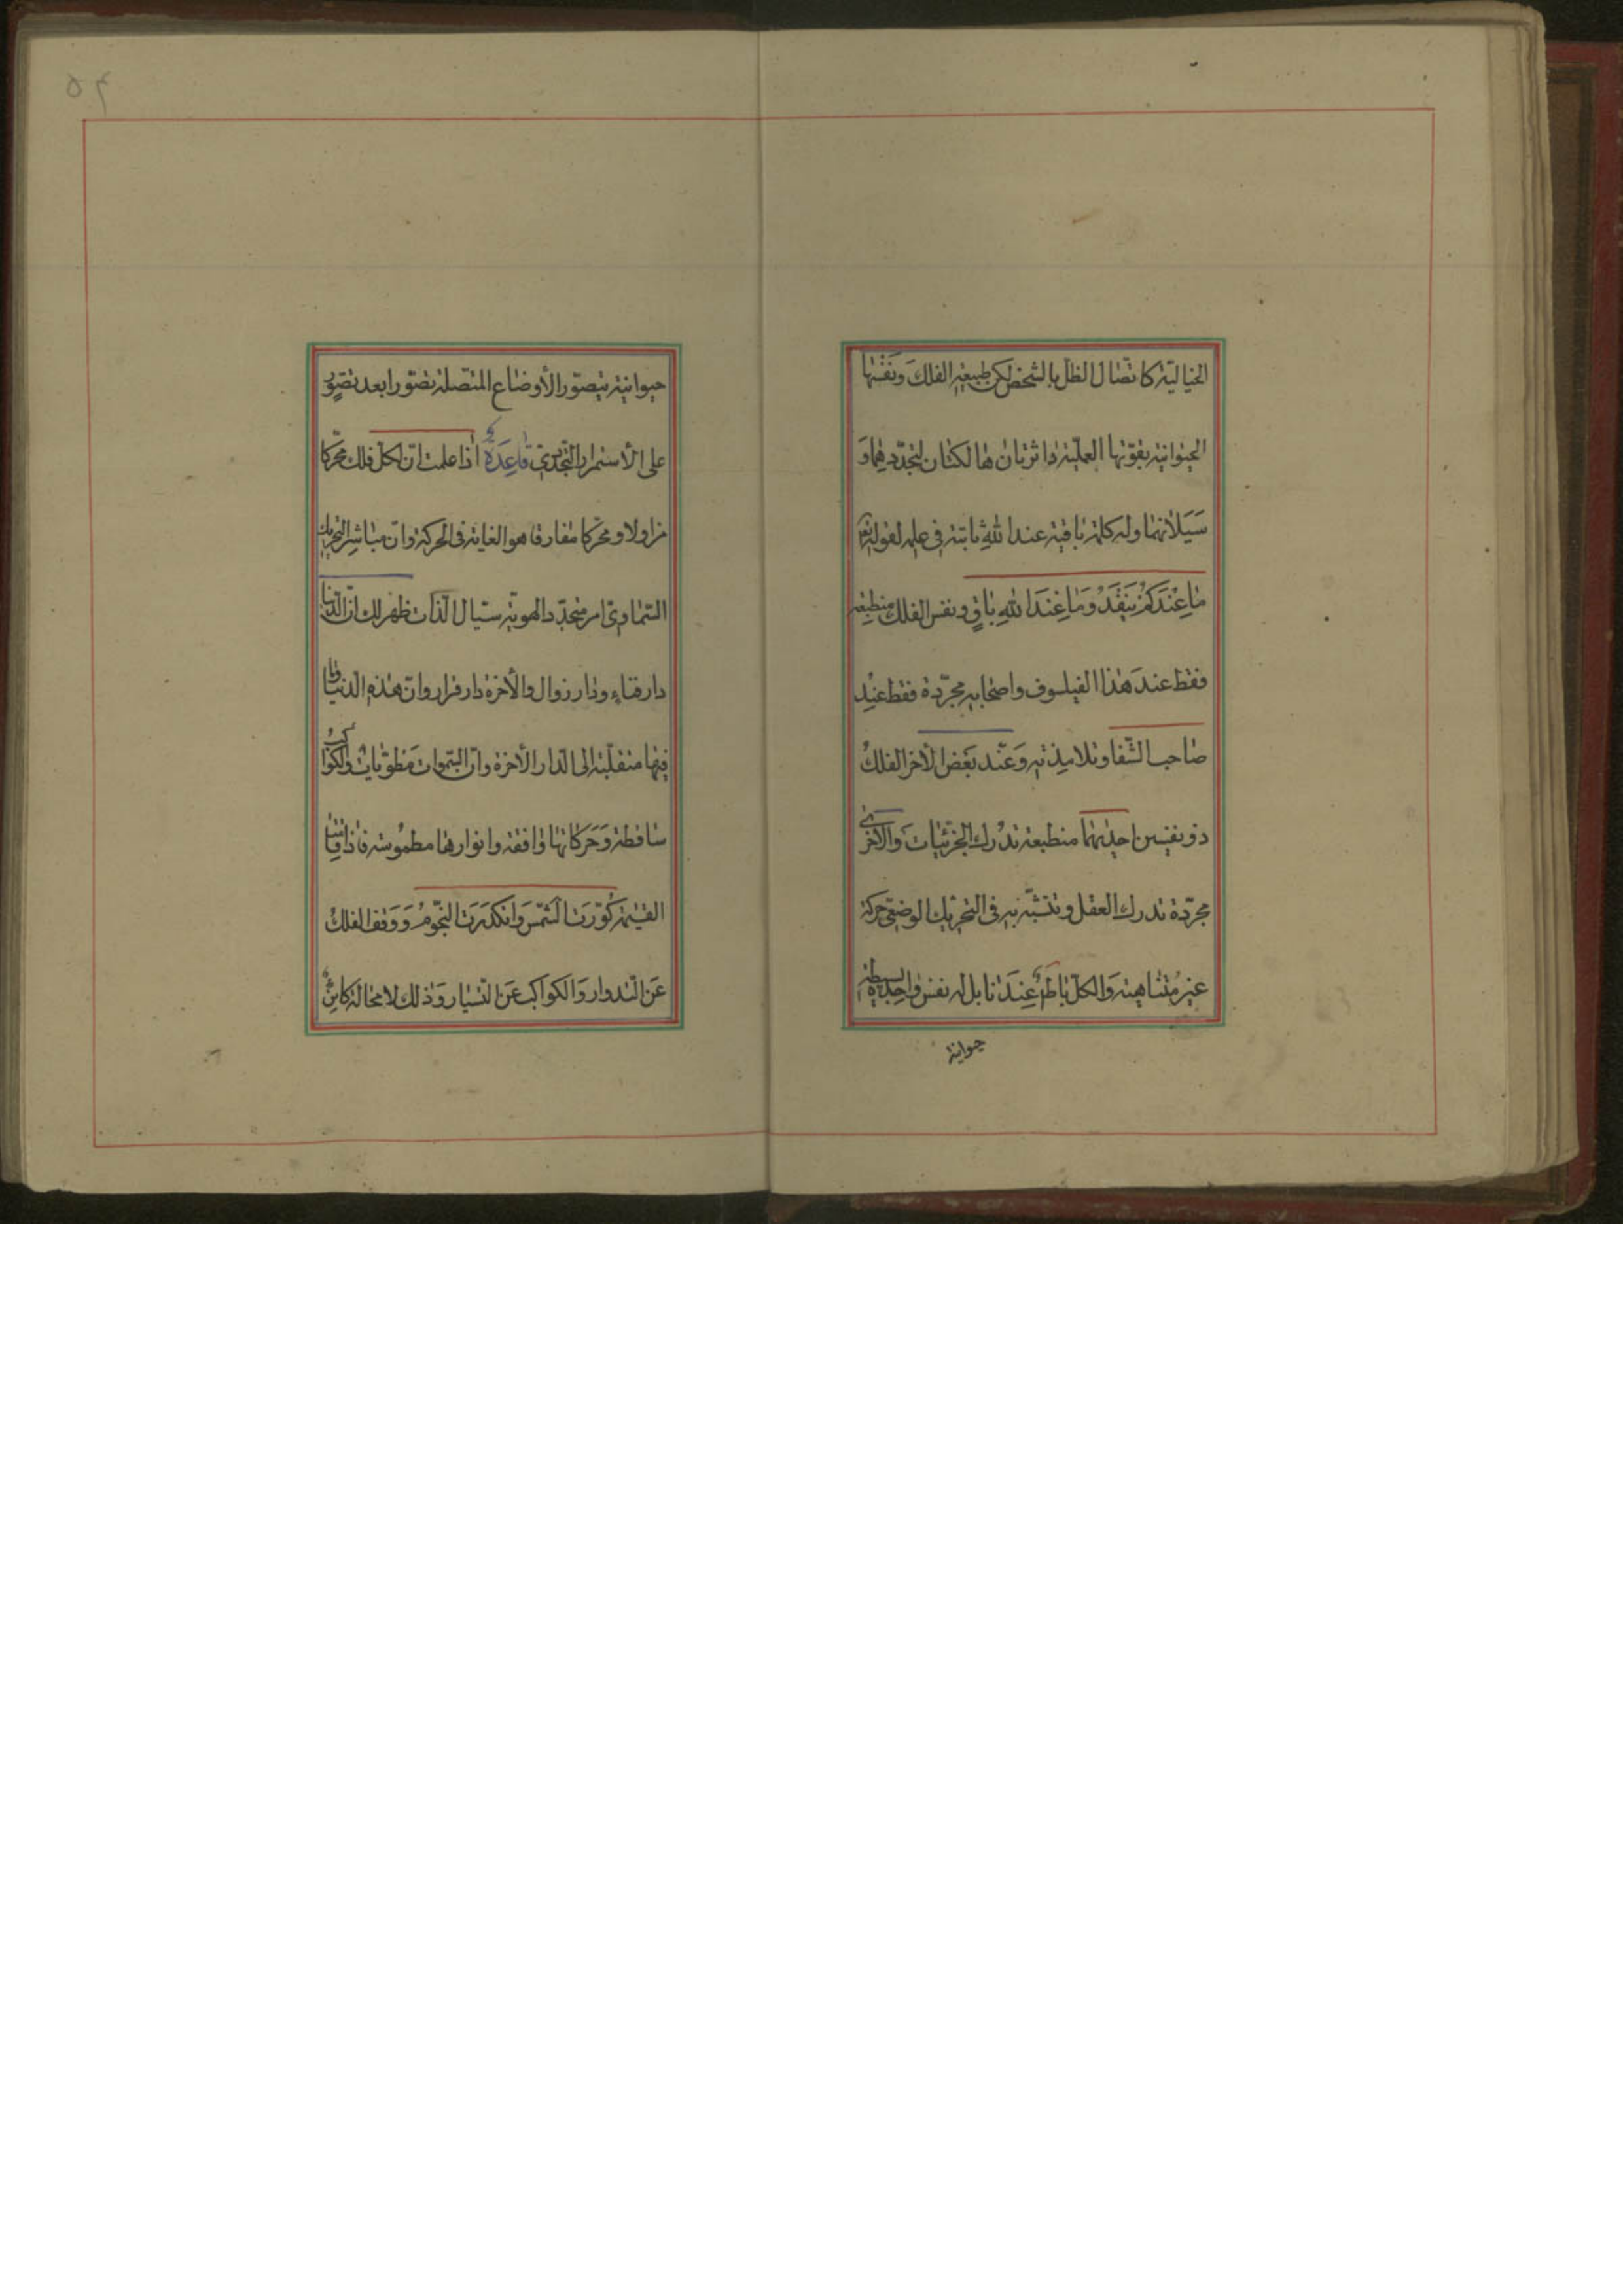 الخياليّة كاتّصال الظلّ بالشخص لكن طبيعة الفلك ونفسها
الحيوانية بقوّتها العمليّة داثرتان هالكتان لتجدّدهما و
سَيَلانهما وله كلمة باقية عند اللهِ ثابتة فى علمه لقوله تعالى
ما عِندَكُم يَنفَدُ وَما عِندَ اللهِ باقٍ ونفس الفلك منطبعة
فقط عند هذا الفيلسوف واصحابه مجرّدة فقط عند
صاحب الشّفا وتلامِذته وَعند بَعض الأخر الفلك
ذو نفسين احديهما منطبعة تدرك الجزئيّات وَالأخرى
مجرّدة تدرك العقل وتتشبّه به فى التحريك الوضعى حركة
غير مُتناهية وَالكلّ باطلٌ عِندَنا بل له نفس واحدة بسيطة
حيوانية
٥٤
حيوانية يتصوّر الأوضاع المتصلة تصوّرا بعد تصوّر
على الأستمرار التجدّدى قاعِدَة اذا علمت انّ لكل فلك محرّكا
مزاولا ومحرّكا مفارقا هو الغاية فى الحركة وانّ مباشر التحريك
السّماوى امر متجدّد الهويّة سيّال الذّات ظهر لك ان الدّنيا
دار فناء ودار زوال والأخرة دار قرار وانّ هذه الدّنيا وما
فيها منقلبة الى الدّار الأخرة وانّ السّموات مَطويّات والكواكب
ساقطة وَحَركاتها واقفة وانوارها مطمُوسة فاذا قامت
القيمة كُوّرَت الشّمس وَانكَدَرَت النّجُومُ وَوقف الفلك
عَن الدّوار وَالكواكب عَن التّسيار وَذلك لا محالة كاين